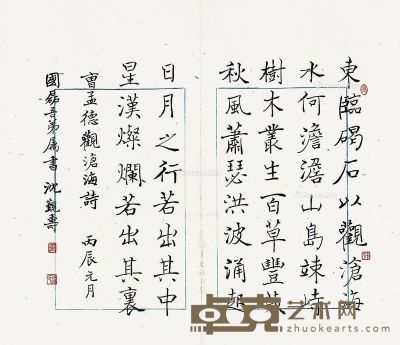 東臨碣石以觀滄海
水何澹澹山島竦峙
樹木叢生百草豐茂
秋風蕭瑟洪波涌起
日月之行若出其中
星漢燦爛若出其裏
曹孟德觀滄海詩 丙辰元月
國磊吾弟屬書 沈觀壽
卓克艺术网
zhuokearts.com